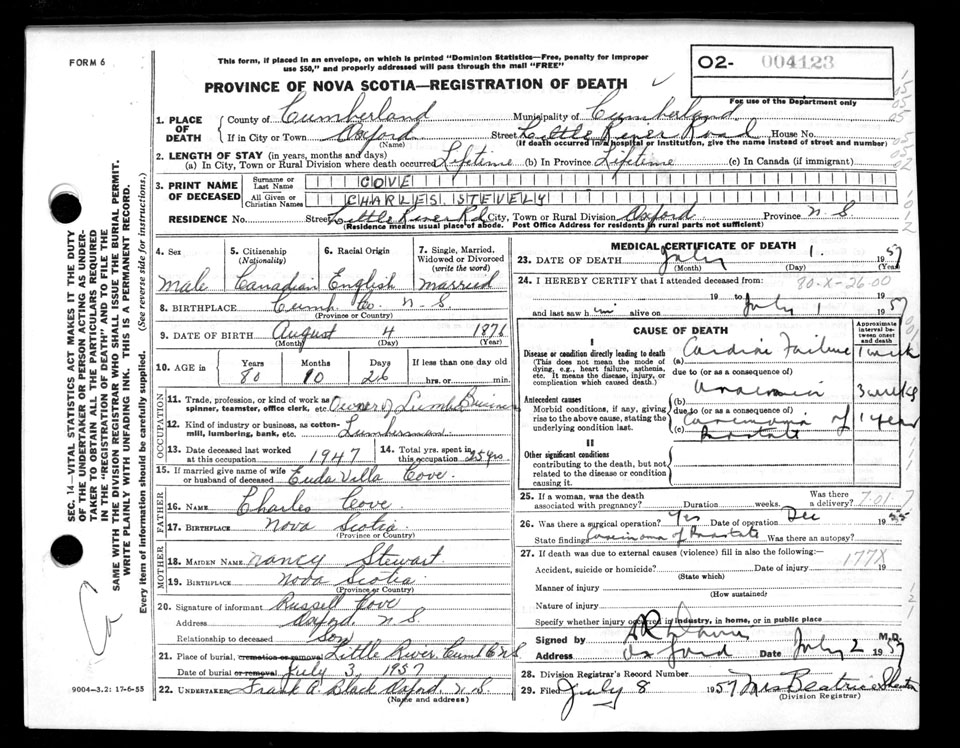 FORM 6
This form, if placed in an envelope, on which is printed "Dominion Statistics—Free, penalty for improper
use $50," and properly addressed will pass through the mail "FREE"
O2- 004123
For use of the Department only
PROVINCE OF NOVA SCOTIA—REGISTRATION OF DEATH
1. PLACE OF DEATH
County of Cumberland Municipality of Cumberland
If in City or Town Oxford Street Little River Road House No.
(Name) (If death occurred in a hospital or institution, give the name instead of street and number)
2. LENGTH OF STAY (in years, months and days)
(a) In City, Town or Rural Division where death occurred Lifetime (b) In Province Lifetime (c) In Canada (if immigrant)
3. PRINT NAME OF DECEASED
Surname or Last Name COVE
All Given or Christian Names CHARLES STEVELY
RESIDENCE No. Street Little River Rd City, Town or Rural Division Oxford Province N. S
(Residence means usual place of abode. Post Office Address for residents in rural parts not sufficient)
4. Sex
Male
5. Citizenship
(Nationality)
Canadian
6. Racial Origin
English
7. Single, Married, Widowed or Divorced
(write the word)
Married
8. BIRTHPLACE Cumb Co. N. S
(Province or Country)
9. DATE OF BIRTH August 4 1876
(Month) (Day) (Year)
10. AGE in Years Months Days If less than one day old
80 10 26 hrs. or min.
OCCUPATION
11. Trade, profession, or kind of work as
spinner, teamster, office clerk, etc. Owner of Lumber Business
12. Kind of industry or business, as cotton-
mill, lumbering, bank, etc. Lumberman
13. Date deceased last worked
at this occupation 1947
14. Total yrs. spent in
this occupation 25 yrs.
15. If married give name of wife
or husband of deceased Euda Villa Cove.
FATHER
16. Name Charles Cove
17. Birthplace Nova Scotia
(Province or Country)
MOTHER
18. MAIDEN NAME Nancy Stewart
19. BIRTHPLACE Nova Scotia
(Province or Country)
20. Signature of informant Russell Cove
Address Oxford. N. S
Relationship to deceased Son
21. Place of burial, cremation or removal Little River Cumb Co N S
Date of burial or removal July 3, 1957
22. UNDERTAKER Frank A. Black Oxford. N. S
(Name and address)
MEDICAL CERTIFICATE OF DEATH
23. DATE OF DEATH July 1. 1957
(Month) (Day) (Year)
24. I HEREBY CERTIFY that I attended deceased from:
80-X-26-00
19 to July 1 1957
and last saw him alive on 19
CAUSE OF DEATH
Approximate interval between onset and death
I
Disease or condition directly leading to death
(This does not mean the mode of dying, e.g., heart failure, asthenia, etc. It means the disease, injury, or complication which caused death.)
(a) Cardiac Failure 1 week
due to (or as a consequence of)
Antecedent causes
Morbid conditions, if any, giving rise to the above cause, stating the underlying condition last.
(b) Anaemia 3 weeks
due to (or as a consequence of)
(c) Carcinoma of Prostate 1 year
II
Other significant conditions
contributing to the death, but not related to the disease or condition causing it.
25. If a woman, was the death
associated with pregnancy? Duration weeks. Was there a delivery? 7-01-7
26. Was there a surgical operation? Yes Date of operation Dec 1955
State finding Carcinoma of Prostate Was there an autopsy?
27. If death was due to external causes (violence) fill in also the following:—
Accident, suicide or homicide? Date of injury 19
177X
(State which)
Manner of injury
(How sustained)
Nature of injury
Specify whether injury occurred in industry, in home, or in public place
Signed by M.D.
Address Oxford Date July 2 1957
28. Division Registrar's Record Number
29. Filed July 8 1957 Mrs Beatrice
(Division Registrar)
SEC. 14—VITAL STATISTICS ACT MAKES IT THE DUTY
OF THE UNDERTAKER OR PERSON ACTING AS UNDER-
TAKER TO OBTAIN ALL THE PARTICULARS REQUIRED
IN THE "REGISTRATION OF DEATH" AND TO FILE THE
SAME WITH THE DIVISION REGISTRAR WHO SHALL ISSUE THE BURIAL PERMIT.
WRITE PLAINLY WITH UNFADING INK. THIS IS A PERMANENT RECORD.
Every item of information should be carefully supplied. (See reverse side for instructions.)
9004-3.2: 17-6-55